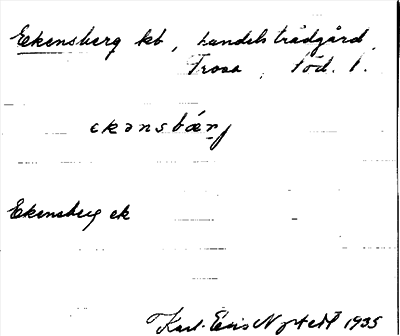 Ekensberg kb, Handelsträdgård,
Trosa, Söd. l.
ekənsbærj
Ekensberg ek
Karl-Eric Nystedt 1935